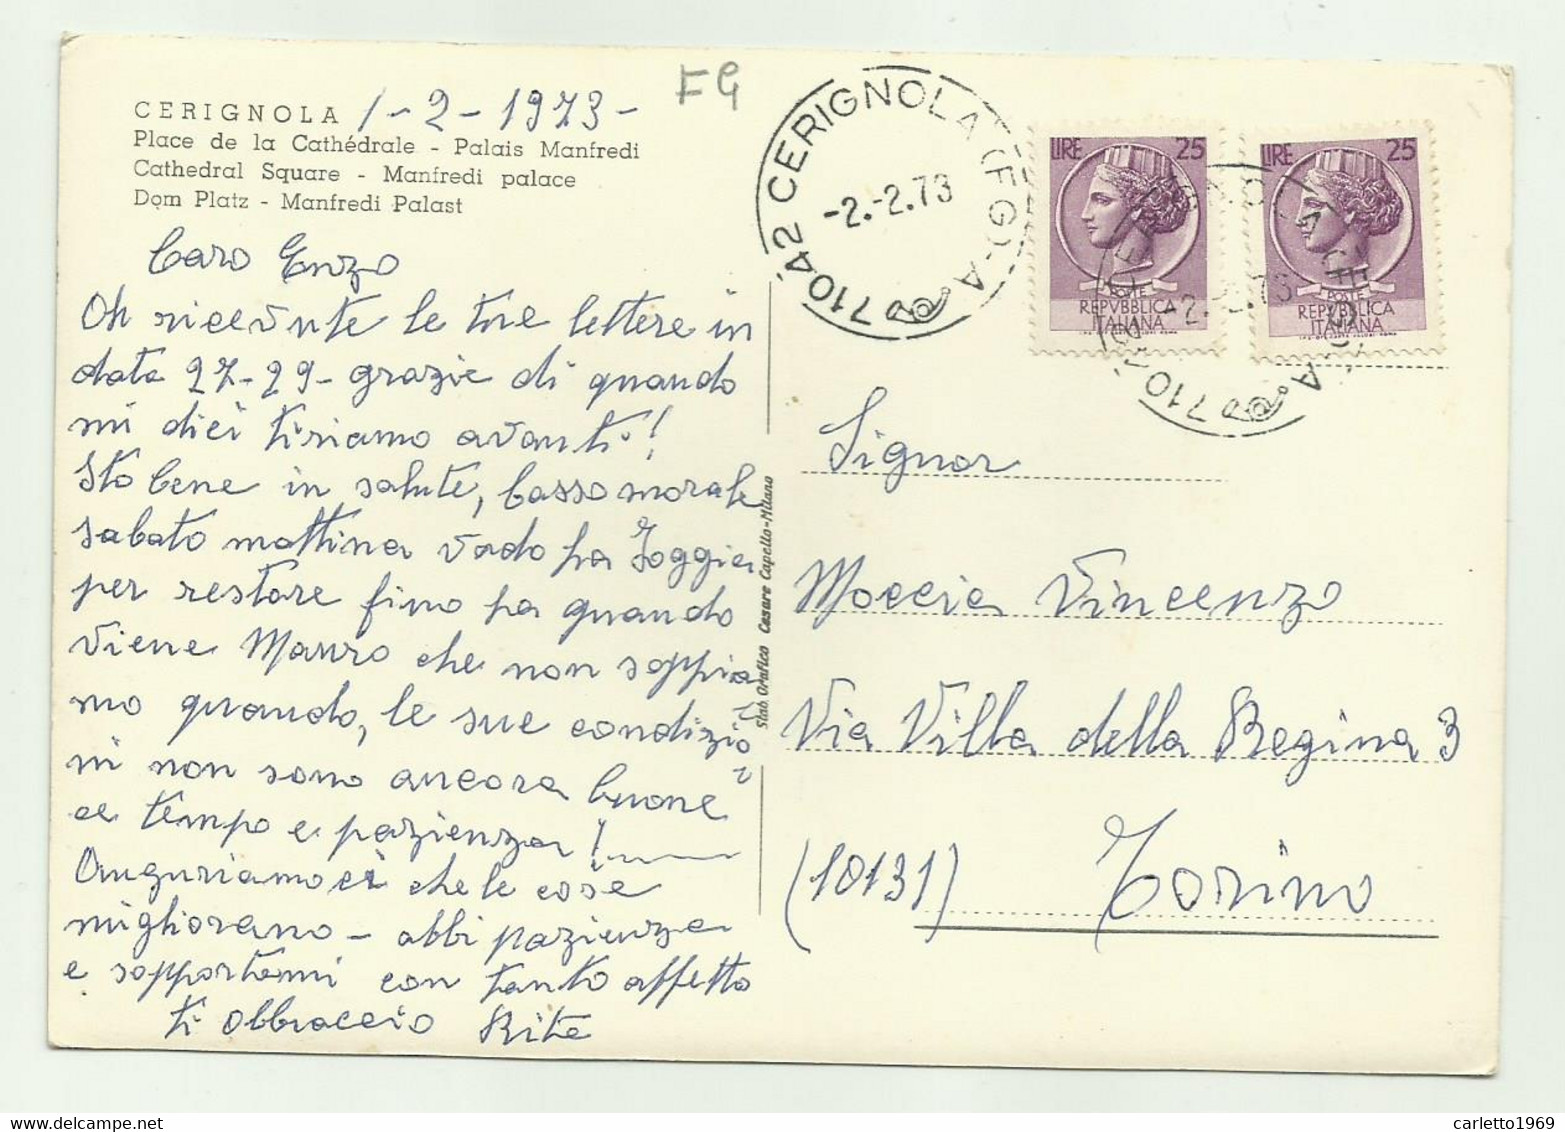 CERIGNOLA 1-2-1973-
Place de la Cathédrale - Palais Manfredi
Cathedral Square - Manfredi palace
Dom Platz - Manfredi Palast
FG
71042 CERIGNOLA (FG) - A
-2.-2.73
LIRE 25
POSTE
REPVBBLICA
ITALIANA
LIRE 25
POSTE
REPVBBLICA
ITALIANA
Caro Enzo
Oh ricevute le tue lettere in
data 27-29- grazie di quando
mi dici tiriamo avanti!
Sto bene in salute, basso morale
sabato mattina vado ha Foggia
per restare fino ha quando
viene Mauro che non sappia
mo quando, le sue condizio
ni non sono ancora buone
ci
ce tempo e pazienza!
Auguriamoci che le cose
migliorano - abbi pazienza
e sopportami con tanto affetto
ti abbraccio Rita
Stab. Grafico Cesare Capello-Milano
Signor
Moccia Vincenzo
Via Villa della Regina 3
(10131) Torino
carletto1969